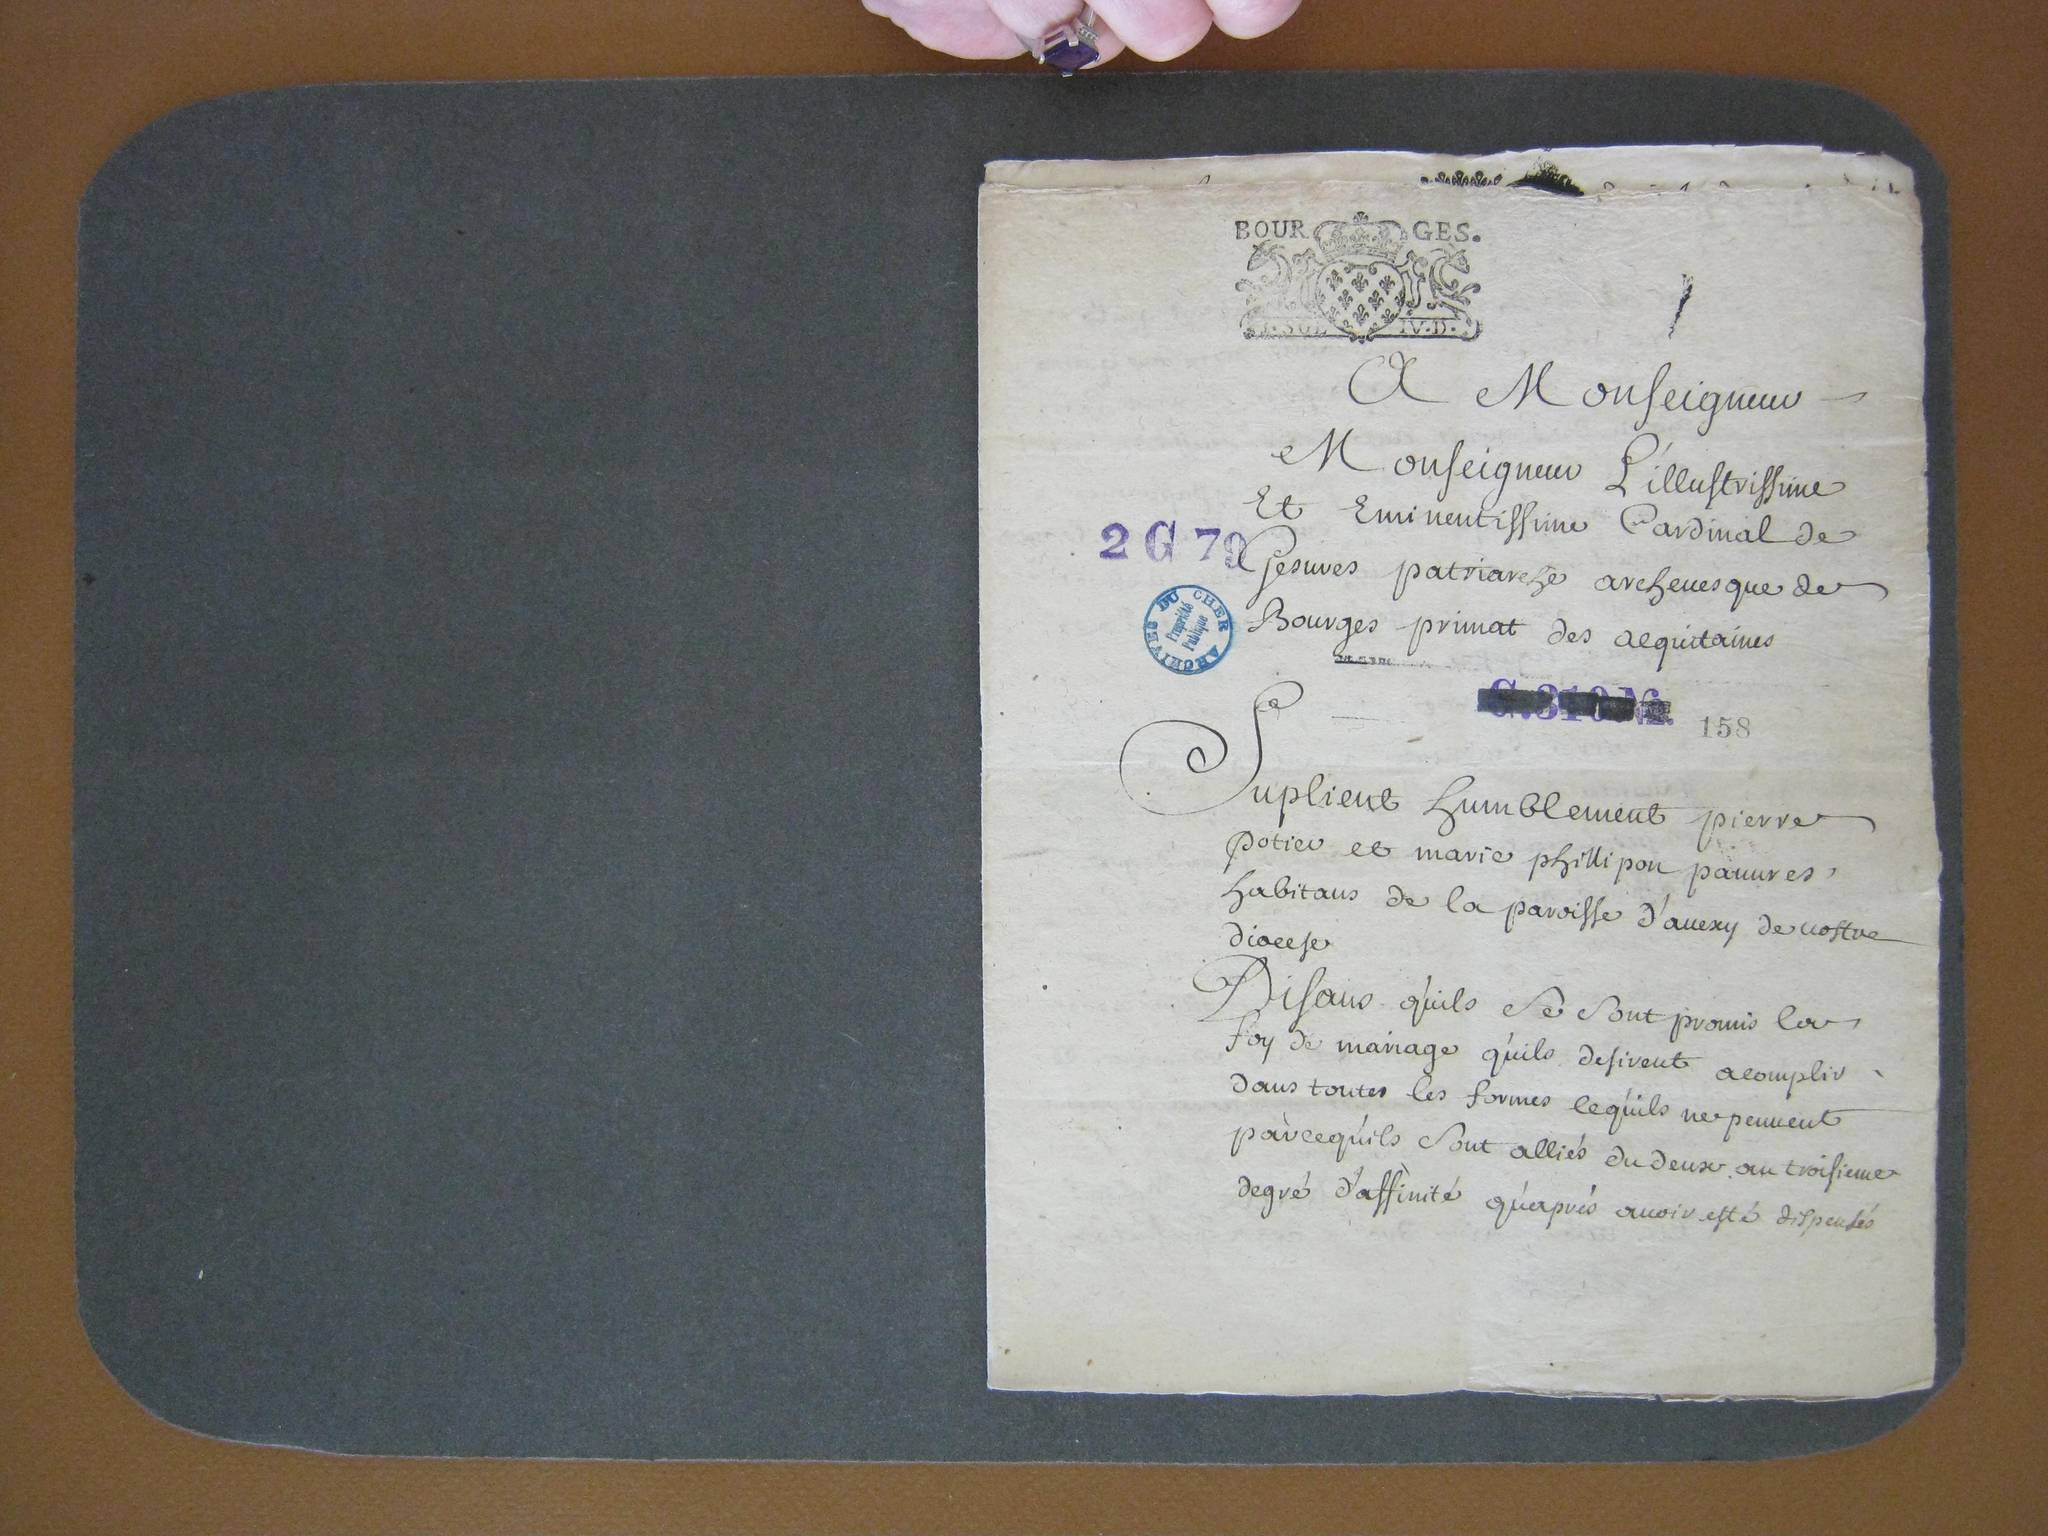 BOURGES.
1. SOL IV. D.
A Monseigneur
Monseigneur L'illustrissime
Et Eminentissime Cardinal de
2 G 79
Gesures patriarche archeuesque de
ARCHIVES DU CHER
Propriété
Publique
Bourges primat des aequitaines
158
Suplient humblement pierre
potier et marie phillipon pauures
habitans de la paroisse d'auexy de vostre
diocese
Disans qu'ils Se Sont promis la
foy de mariage qu'ils desirent acomplir
dans toutes les formes ce qu'ils ne peuuent
parcequ'ils Sont alliés du deux au troisieme
degré d'affinité qu'aprés auoir esté dispensés